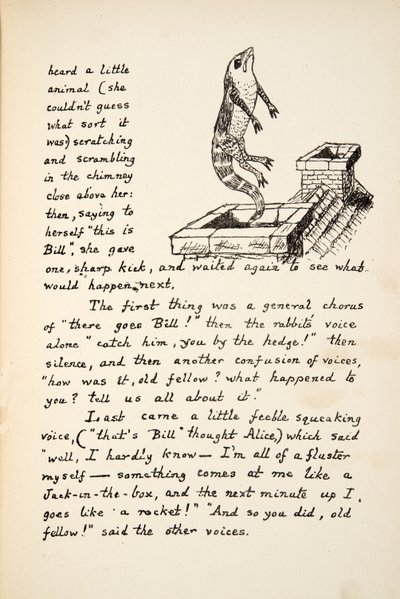 heard a little
animal (she
couldn't guess
what sort it
was) scratching
and scrambling
in the chimney
close above her:
then, saying to
herself "this is
Bill", she gave
one, sharp kick, and waited again to see what
would happen next.
The first thing was a general chorus
of "there goes Bill!" then the rabbit's voice
alone "catch him, you by the hedge!" then
silence, and then another confusion of voices,
"how was it, old fellow? what happened to
you? tell us all about it."
Last came a little feeble squeaking
voice, ("that's Bill" thought Alice,) which said
"well, I hardly know — I'm all of a fluster
myself — something comes at me like a
Jack-in-the-box, and the next minute up I
goes like a rocket!" "And so you did, old
fellow!" said the other voices.